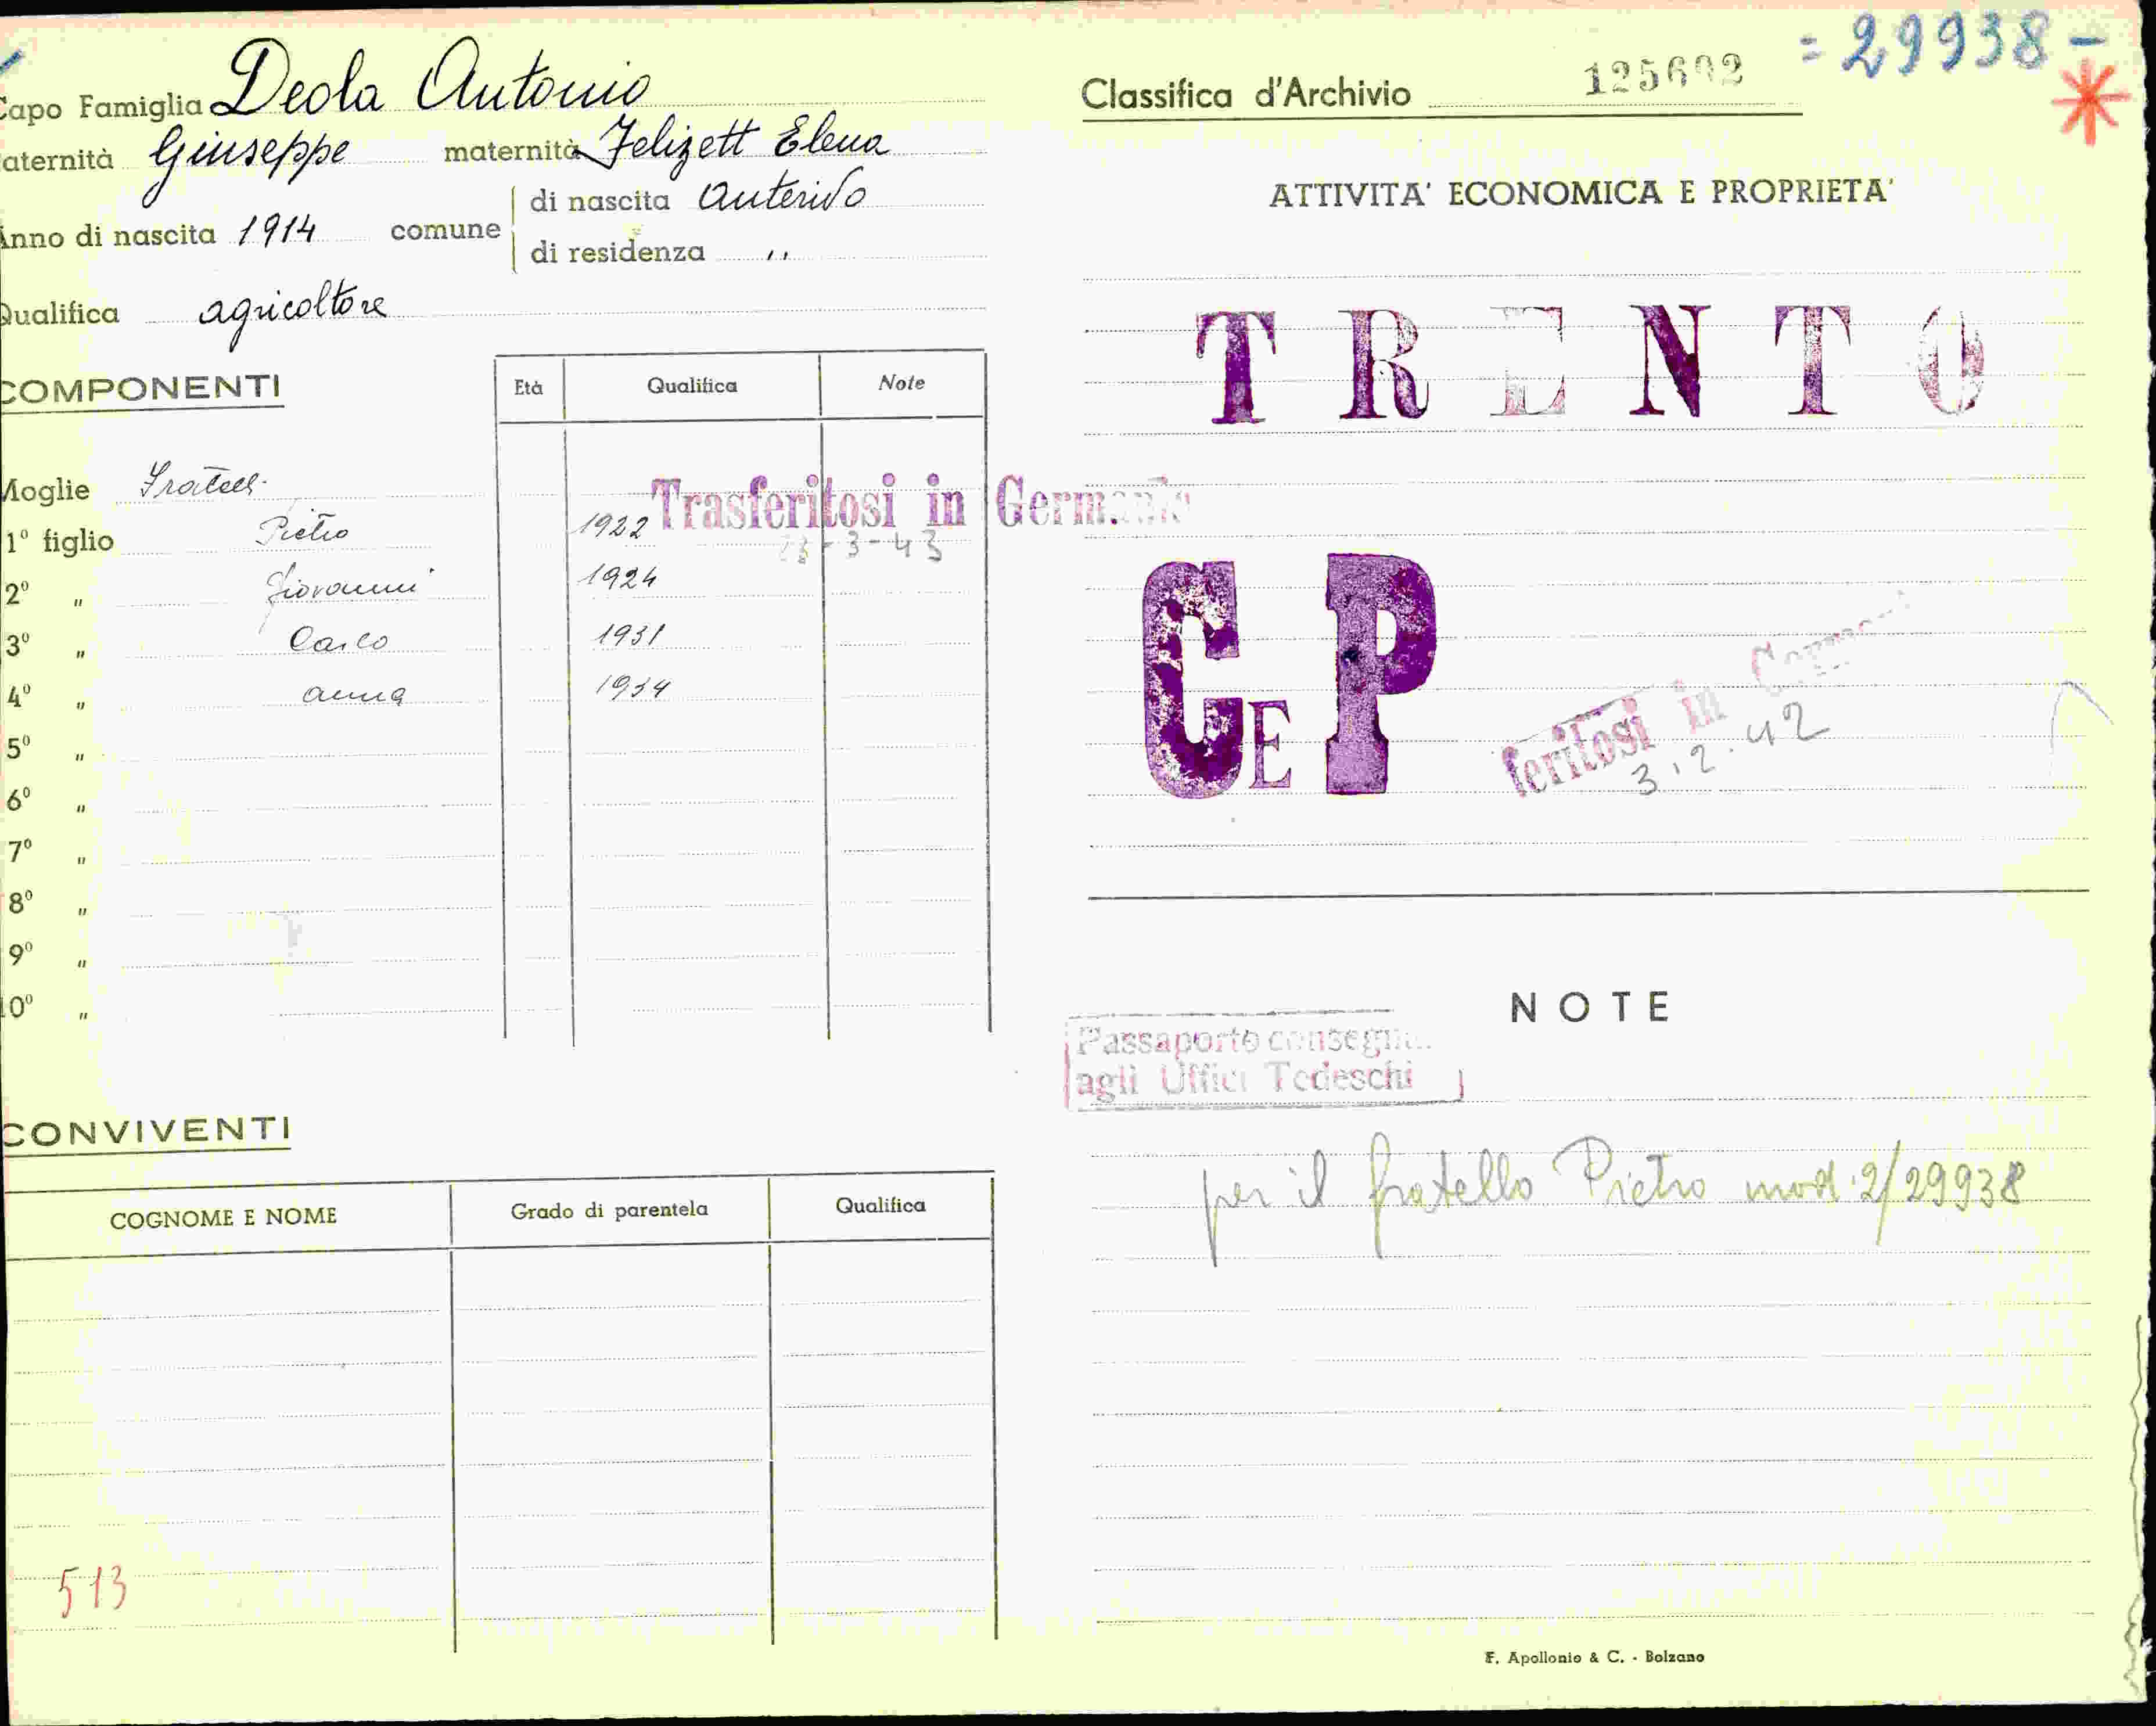 = 29938 -
Capo Famiglia Deola Antonio
Classifica d'Archivio 125692
aternità Giuseppe maternità Felizett Elena
Anno di nascita 1914 comune
di nascita Anterivo
di residenza "
Qualifica agricoltore
COMPONENTI
Età Qualifica Note
Moglie Fratelli
1º figlio Pietro 1922
Trasferitosi in Germania
3-43
2º " Giovanni 1924
3º " Carlo 1931
4º " Anna 1934
5º "
6º "
7º "
8º "
9º "
10º "
CONVIVENTI
COGNOME E NOME Grado di parentela Qualifica
513
ATTIVITA' ECONOMICA E PROPRIETA'
TRENTO
CEP
feritosi in German
3.2.42
NOTE
Passaporto consegn
agli Uffici Tedeschi
per il fratello Pietro mod. 2/29938
F. Apollonio & C. - Bolzano